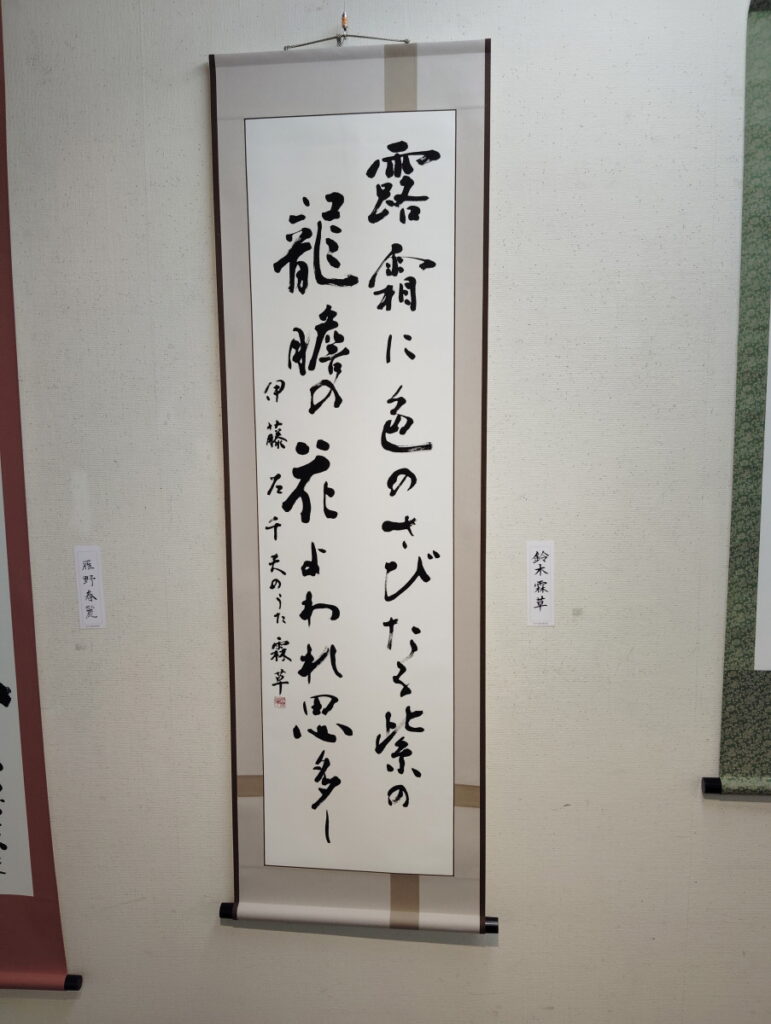 露霜に色のさびたる紫の
龍膽の花よわれ思多し
伊藤左千夫のうた 霖草
鈴木霖草